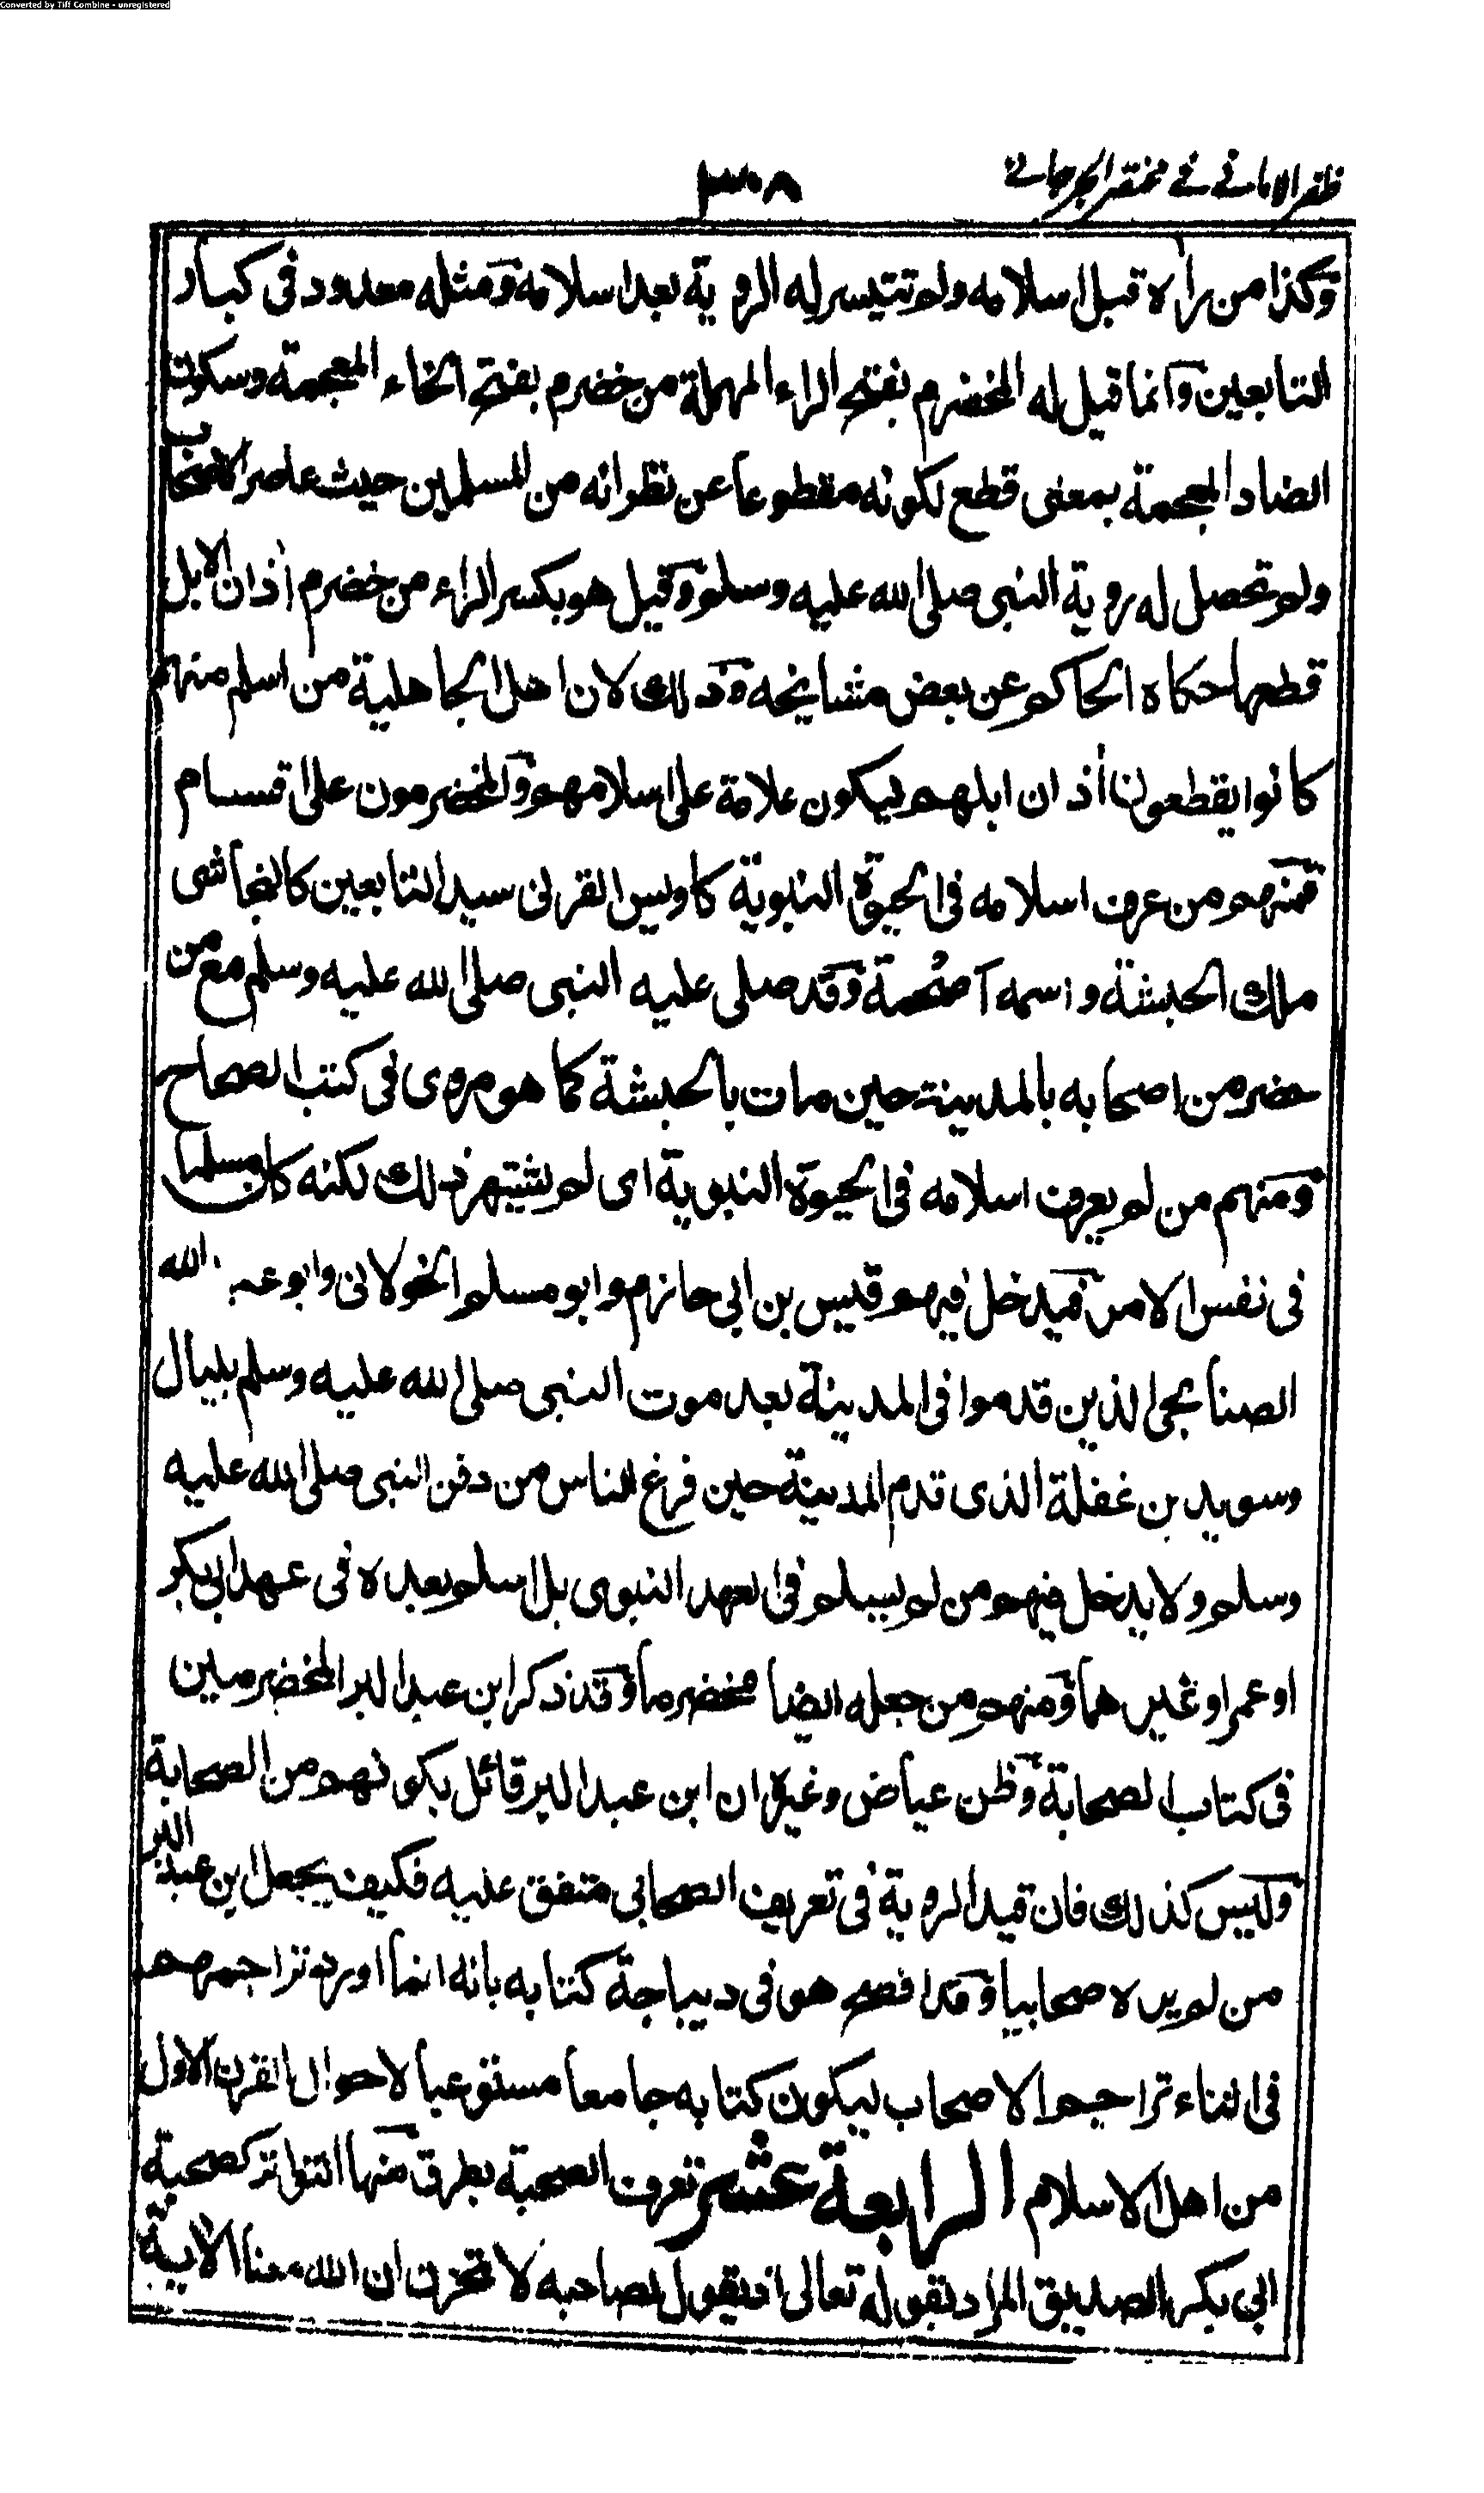 Converted by Tiff Combine - unregistered
ظفر الامانے فے مختصر الجرجانے
٣٠٨
وكذا من رأه قبل اسلامه ولم تتيسر له الروية بعد اسلامه ومثله معدود فى كبار
التابعين وانما قيل له المخضرم بفتح الراء المهملة من خضرم بفتح الخاء المعجمة وسكون
الضاد المعجمة بمعنى قطع لكونه مقطوعا عن نظرائه من المسلمين حيث عاصر الانتخاب
ولم تحصل له روية النبى صلى الله عليه وسلم وقيل هو بكسر الراء من خضرم أذان الابل
قطعها حكاه الحاكم عن بعض مشايخه وذلك لان اهل الجاهلية من اسلم منهم
كانوا يقطعون أذان ابلهم ليكون علامة على اسلامهم والمخضرمون على اقسام
فمنهم من عرف اسلامه فى الحيوة النبوية كاويس القرنى سيد التابعين كالنجاشى
ملك الحبشة واسمه آصحمة وقد صلى عليه النبى صلى الله عليه وسلم مع من
حضر من اصحابه بالمدينة حين مات بالحبشة كما هو مروى فى كتب الصحاح
ومنهم من لم يعرف اسلامه فى الحيوة النبوية اى لم يشتهر ذلك لكنه كان مسلما
فى نفس الامر فيدخل فيهم قيس بن ابى حازم وابو مسلم الخولانى وابو عبد الله
الصنابحى الذين قدموا فى المدينة بعد موت النبى صلى الله عليه وسلم بليال
وسويد بن غفلة الذى قدم المدينة حين فرغ الناس من دفن النبى صلى الله عليه
وسلم ولا يدخل فيهم من لم يسلم فى العهد النبوى بل اسلم بعده فى عهد ابى بكر
او عمر او غيرهما ومنهم من جعله ايضا مخضرما وقد ذكر ابن عبد البر المخضرمين
فى كتاب الصحابة وظن عياض وغيره ان ابن عبد البر قائل بكونهم من الصحابة
وليس كذلك فان قيد الروية فى تعريف الصحابى متفق عليه فكيف يجعل ابن عبد البر
من لم يره صحابيا وقد افصح هو فى ديباجة كتابه بانه انما اورد تراجمهم
فى اثناء تراجم الاصحاب ليكون كتابه جامعا مستوعبا لاحوال القرن الاول
من اهل الاسلام الرابعة عشر تعرف الصحبة بطرق منها التواتر كصحبة
ابى بكر الصديق المراد بقوله تعالى اذ يقول لصاحبه لا تحزن ان الله معنا الآية